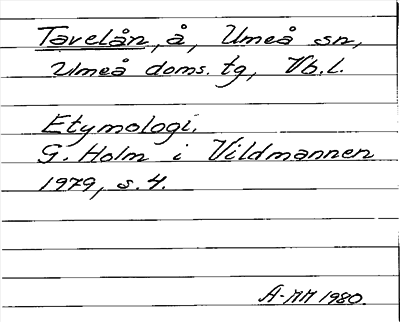 Tavelån, å, Umeå sn,
Umeå doms. tg, Vb.l.
Etymologi.
G. Holm i Vildmannen
1979, s. 4.
A-MM 1980.